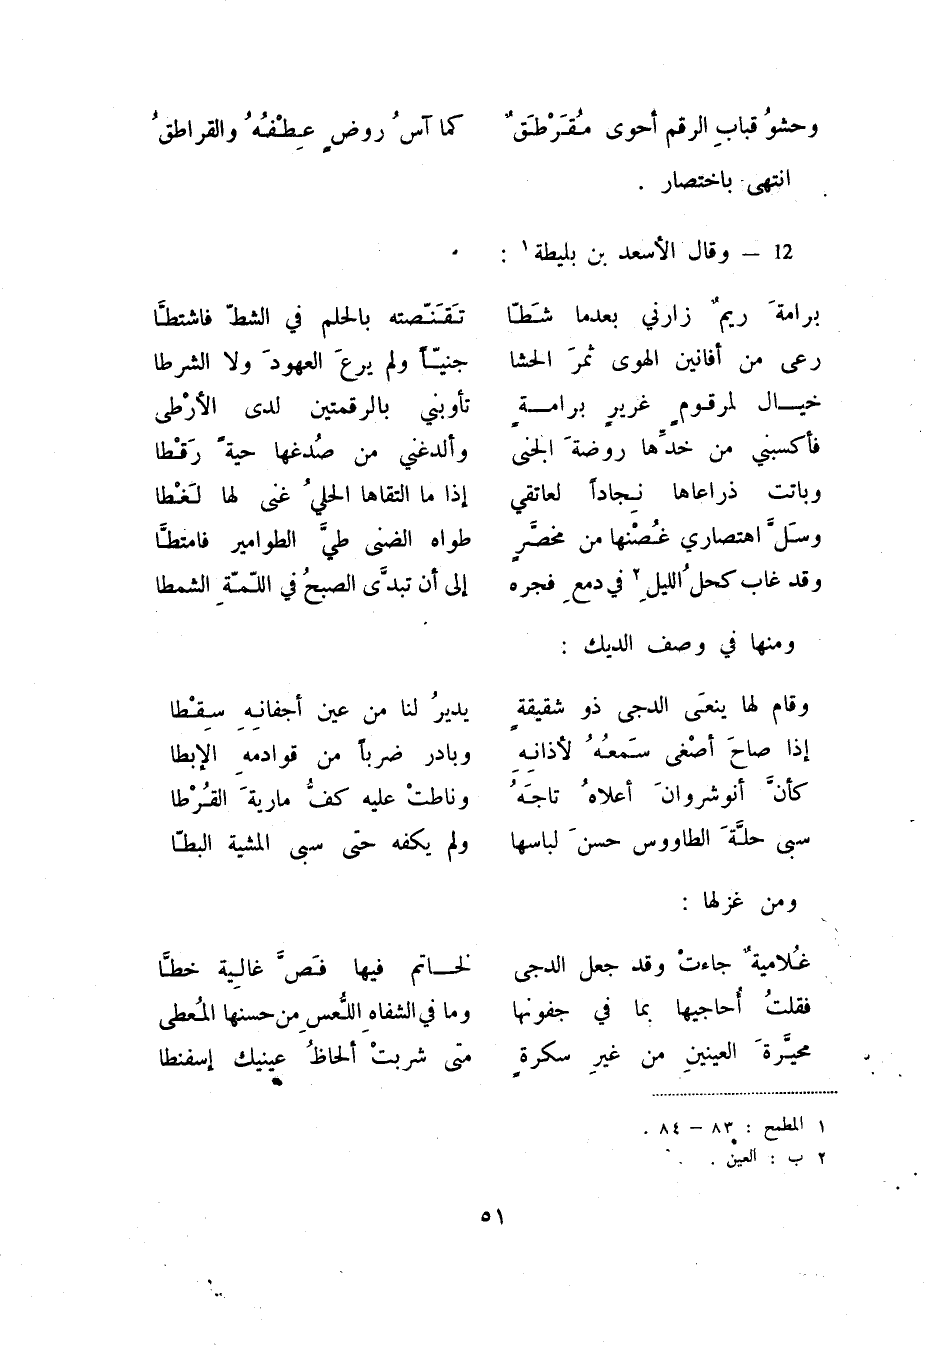 وحشوُ قبابِ الرقم أحوى مُقَرْطَقٌ كما آسُ روضٍ عِطْفُهُ والقراطقُ
انتهى باختصار .
12 – وقال الأسعد بن بليطة١ :
برامةَ ريمٌ زارني بعدما شَطّا تَقَنّصته بالحلم في الشطّ فاشتطَّا
رعى من أفانين الهوى ثمرَ الحشا جنيّاً ولم يرعَ العهودَ ولا الشرطا
خيال لمرقومٍ غريرٍ برامةٍ تأوبني بالرقمتين لدى الأرْطى
فأكسبني من خدِّها روضةَ الجنى وألدغني من صُدغها حيةً رَقْطا
وباتت ذراعاها نِجاداً لعاتقي إذا ما التقاها الحليُ غنى لها لَغْطا
وسَلَّ اهتصاري غُصْنها من مخصَّرٍ طواه الضنى طيَّ الطوامير فامتطَّا
وقد غاب كحلُ الليلِ٢ في دمعِ فجره إلى أن تبدَّى الصبحُ في اللّمّةِ الشمطا
ومنها في وصف الديك :
وقام لها ينعَى الدجى ذو شقيقةٍ يديرُ لنا من عين أجفانِهِ سِقْطا
إذا صاحَ أصْغى سَمعُهُ لأذانِهِ وبادر ضرباً من قوادمهِ الإبطا
كأنَّ أنوشروانَ أعلاهُ تاجَهُ وناطتْ عليه كفُّ ماريةَ القُرْطا
سبى حلَّةَ الطاووس حسنَ لباسها ولم يكفه حتى سبى المشية البطّا
ومن غزلها :
غُلاميةٌ جاءتْ وقد جعل الدجى لخاتم فيها فَصَّ غالِية خطَّا
فقلتُ أُحاجيها بما في جفونها وما في الشفاهِ اللُّعسِ من حسنها المُعطى
محيَّرةَ العينينِ من غيرِ سكرةٍ متى شربتْ ألحاظُ عينيك إسفنطا
١ المطمح : ٨٣ – ٨٤ .
٢ ب : العين .
٥١